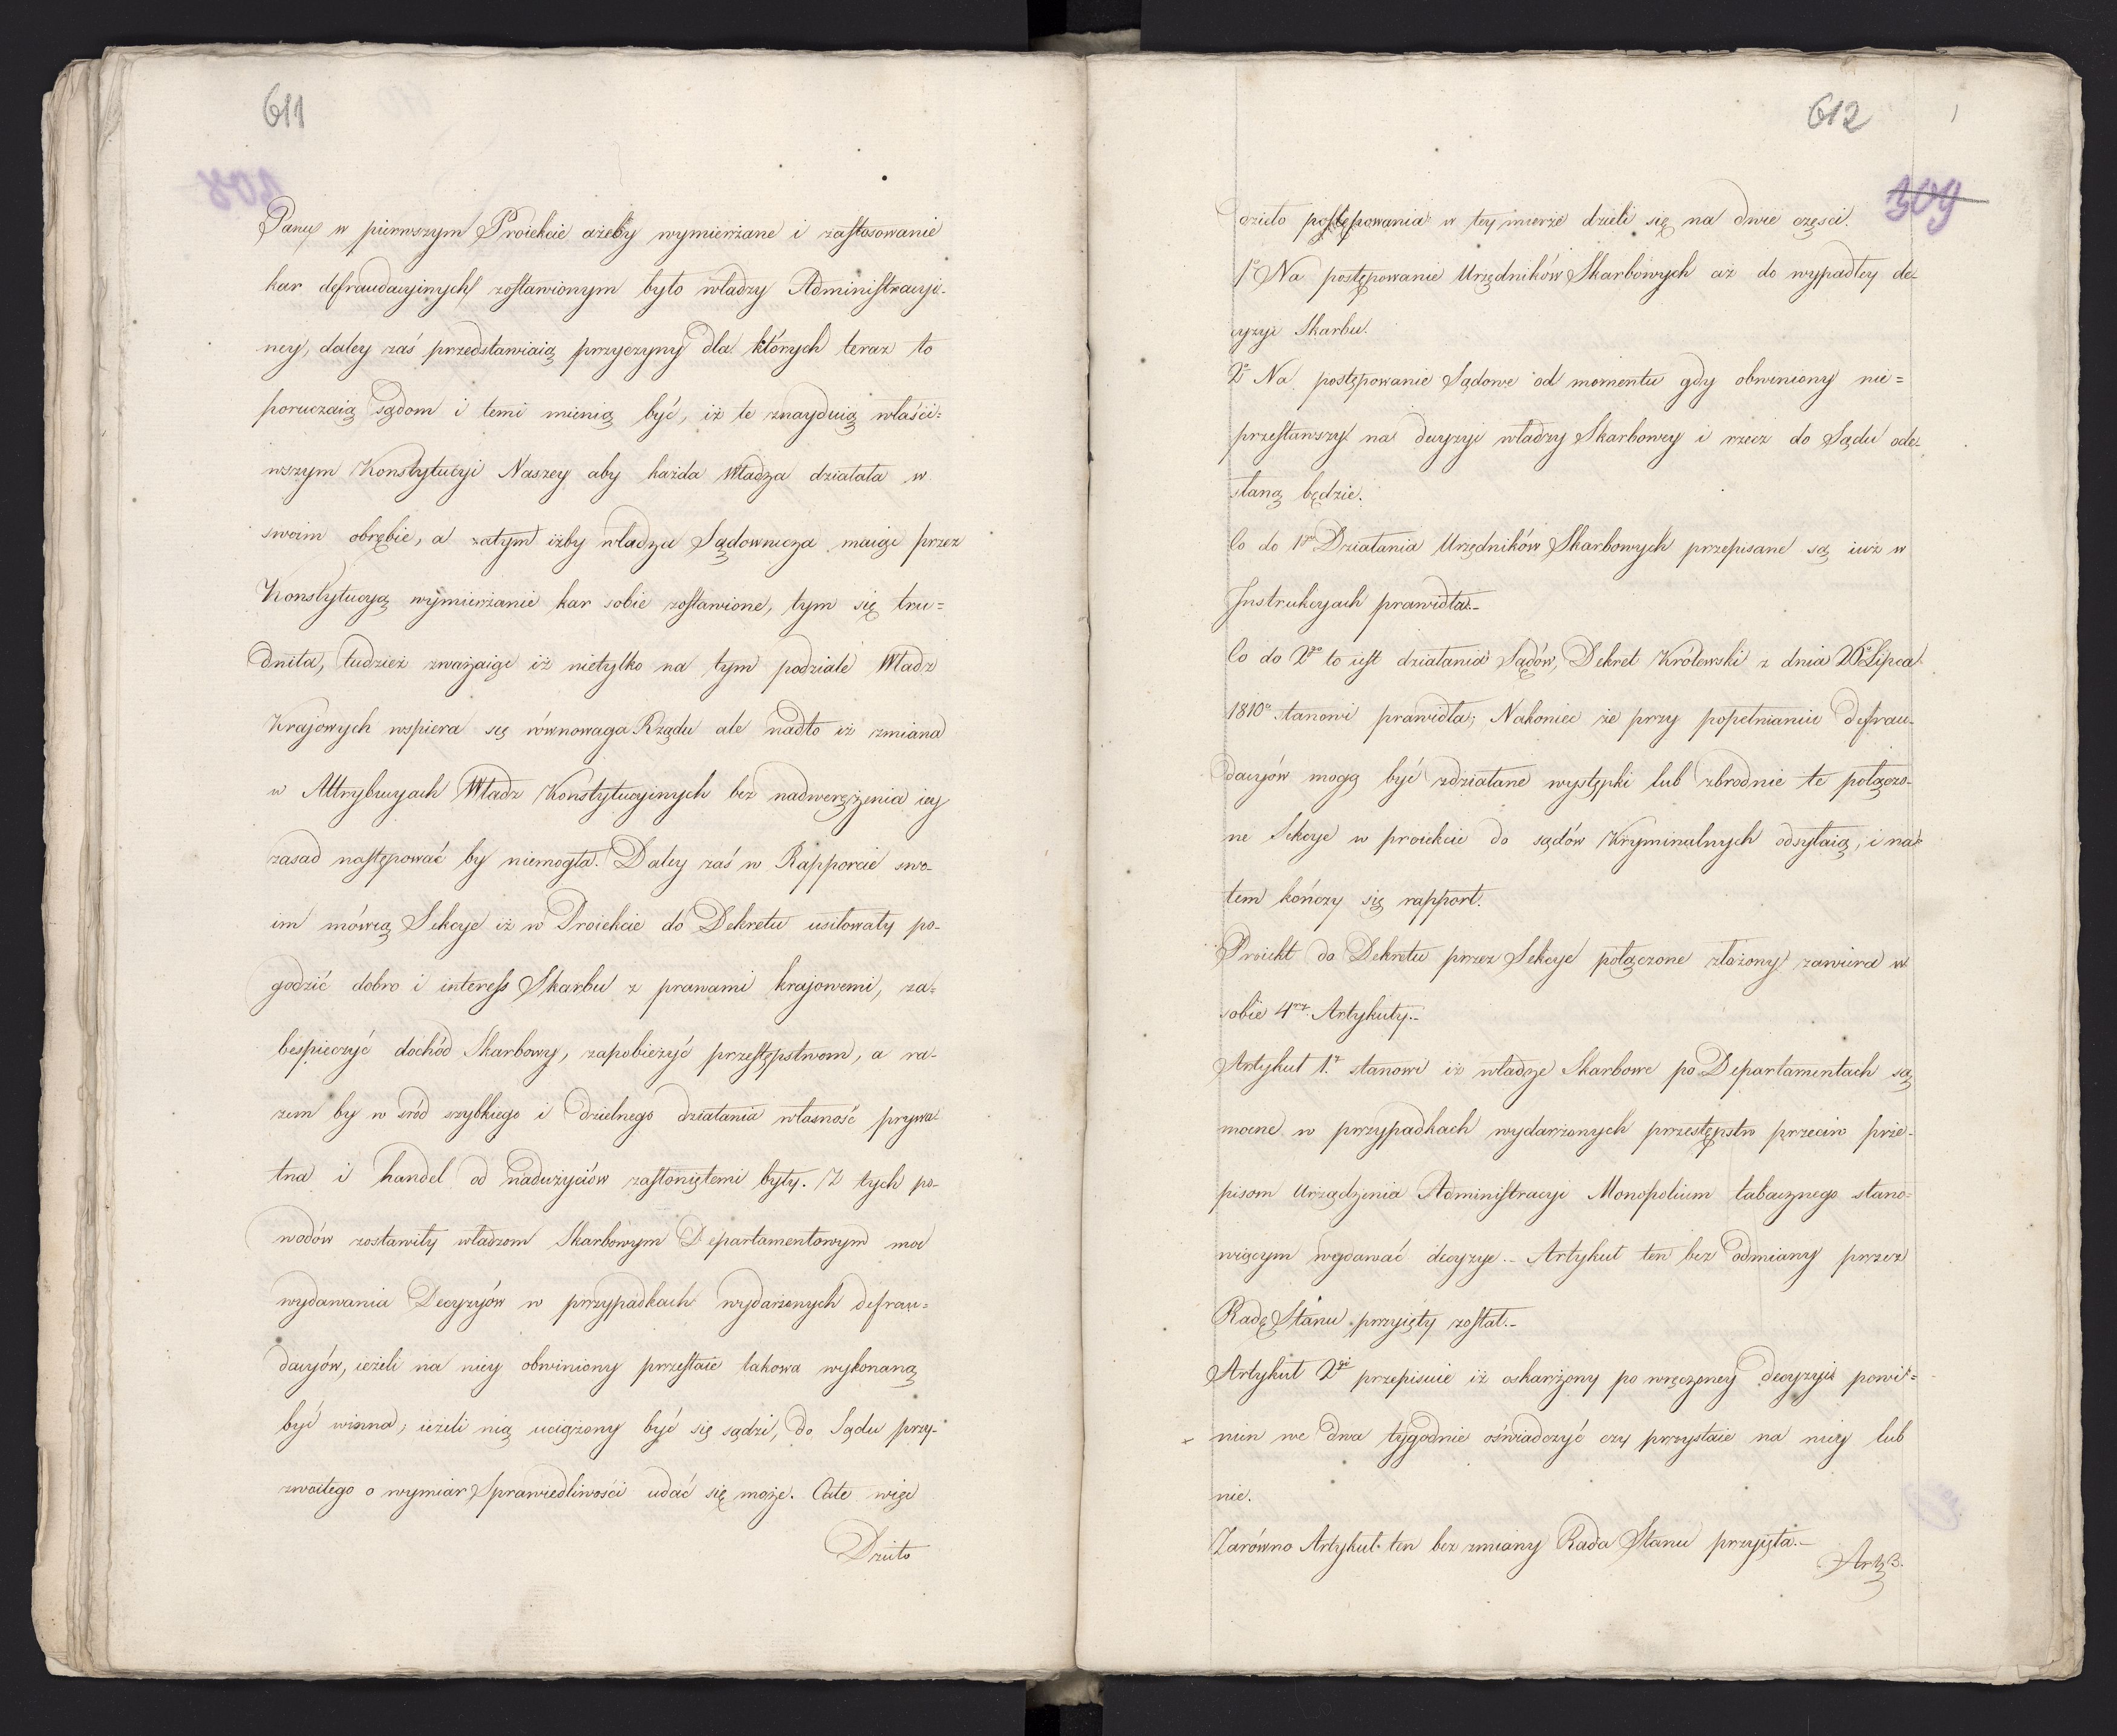 611
Panuy w pierwszym Proiekcie ażeby wymierżane i zastosowanie
kar defraudacyinych zostawionym było władzy Administracyi-
ney, daley zaś przedstawiaią przyczyny dla których teraz to
poruczaią sądom i temi mienią być, iż te znayduią właści=
wszym Konstytucyi Naszey aby każda Władza działała w
swoim obrębie, a zatym iżby władza Sądownicza maiąc przez
Konstytucyą wymierżanie kar sobie zostawione, tym się tru=
dniła, tudzież zważaiąc iż nietylko na tym podziale Władz
Krajowych wspiera się równowaga Rządu ale nadto iż zmiana
w Attrybucyach Władz Konstytucyinych bez nadwerężenia iey
zasad następować by niemogła. Daley zaś w Rapporcie swo-
im mówią Sekcye iż w Proiekcie do Dekretu usiłowały po-
godzić dobro i interess Skarbu z prawami krajowemi, za=
bespieczyć dochód Skarbowy, zapobieżyć przestępstwom, a ra-
zem by w śród szybkiego i dzielnego działania własność prywa-
tna i handel od nadużyciów zasłoniętemi były. Z tych po-
wodów zostawiły władzom Skarbowym Departamentowym moc
wydawania Decyzyów w przypadkach wydarżonych defrau=
dacyów, ieżeli na niey obwiniony przestaie takowa wykonaną
być winna, ieżeli nią uciążony być się sądzi, do Sądu przy-
zwoitego o wymiar Sprawiedliwości udać się może. Całe więc
Dzieło
612
309
dzieło postępowania w tey mierze dzieli się na dwie części.
1o Na postępowanie Urzędników Skarbowych aż do wypadłey de-
cyzyi Skarbu.
2o Na postępowanie Sądowe od momentu gdy obwiniony nie=
przestawszy na decyzyi władzy Skarbowey i rzecz do Sądu ode-
słaną będzie.
Co do 1go Działania Urzędników Skarbowych przepisane są iuż w
Instrukcyach prawidła.-
Co do 2go to iest działania Sądów, Dekret Królewski z dnia 26o Lipca
1810r. stanowi prawidła; Nakoniec że przy popełnianiu defrau-
dacyów mogą być zdziałane występki lub zbrodnie te połączo-
ne Sekcye w proiekcie do sądów Kryminalnych odsyłaią, i na
tem kończy się rapport.
Proiekt do Dekretu przez Sekcye połączone złożony zawiera w
sobie 4ry Artykuły.-
Artykuł 1.y stanowi iż władze Skarbowe po Departamentach są
mocne w przypadkach wydarżonych przestępstw przeciw prze-
pisom Urządzenia Administracyi Monopolium tabacznego stano-
wiącym wydawać decyzye.- Artykuł ten bez odmiany przez
Radę Stanu przyięty został.-
Artykuł 2gi przepisuie iż oskarżony po wręczoney decyzyi powi=
nien we dwa tygodnie oświadczyć czy przystaie na niey lub
nie.
Zarówno Artykuł ten bez zmiany Rada Stanu przyięła.-
Arty 3.